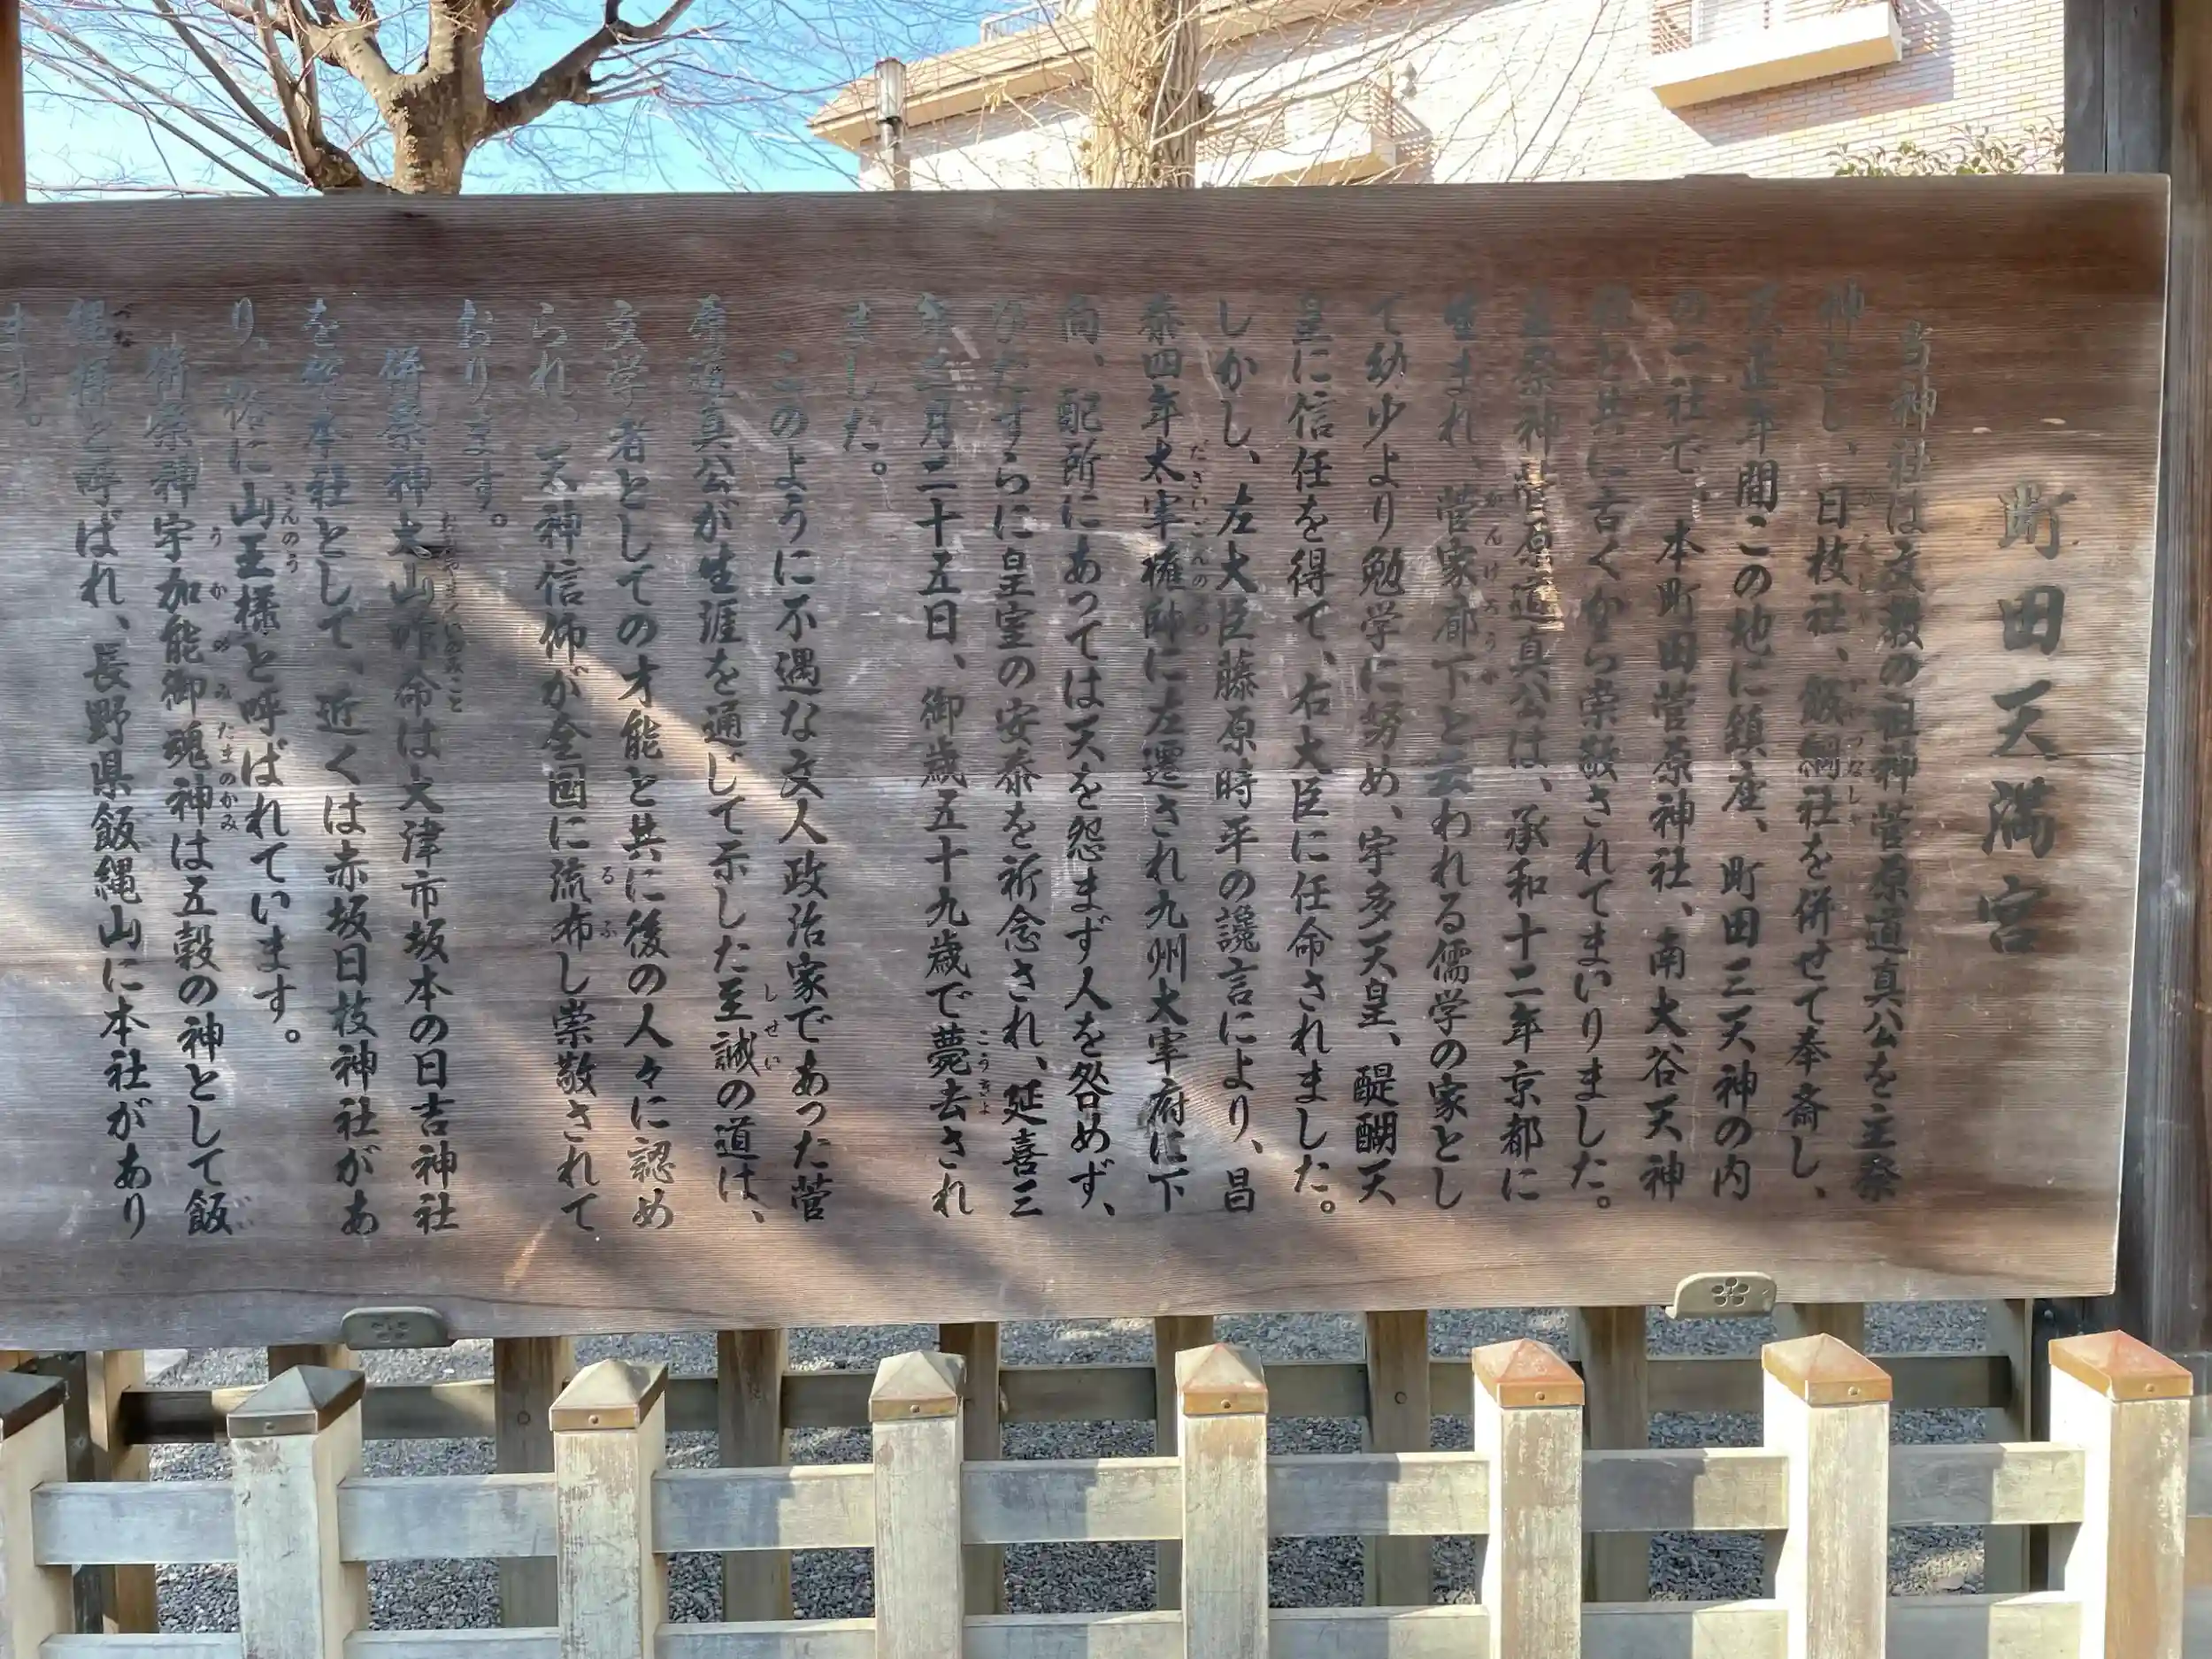 町田天満宮
当神社は文教の祖神菅原道真公を主祭
神とし、日枝社、飯綱社を併せて奉斎し、
大正年間この地に鎮座、町田三天神の内
の一社で、本町田菅原神社、南大谷天神
社と共に古くから崇敬されてまいりました。
主祭神菅原道真公は、承和十二年京都に
生まれ、菅家廊下と云われる儒学の家とし
て幼少より勉学に努め、宇多天皇、醍醐天
皇に信任を得て、右大臣に任命されました。
しかし、左大臣藤原時平の讒言により、昌
泰四年太宰権帥に左遷され九州太宰府に下
向、配所にあっては天を怨まず人を咎めず、
ひたすらに皇室の安泰を祈念され、延喜三
年二月二十五日、御歳五十九歳で薨去され
ました。
このように不遇な文人政治家であった菅
原道真公が生涯を通じて示した至誠の道は、
文学者としての才能と共に後の人々に認め
られ、天神信仰が全国に流布し崇敬されて
おります。
併祭神大山咋命は大津市坂本の日吉神社
を総本社として、近くは赤坂日枝神社があ
り、俗に山王様と呼ばれています。
併祭神宇加能御魂神は五穀の神として飯
縄様と呼ばれ、長野県飯縄山に本社があり
ます。